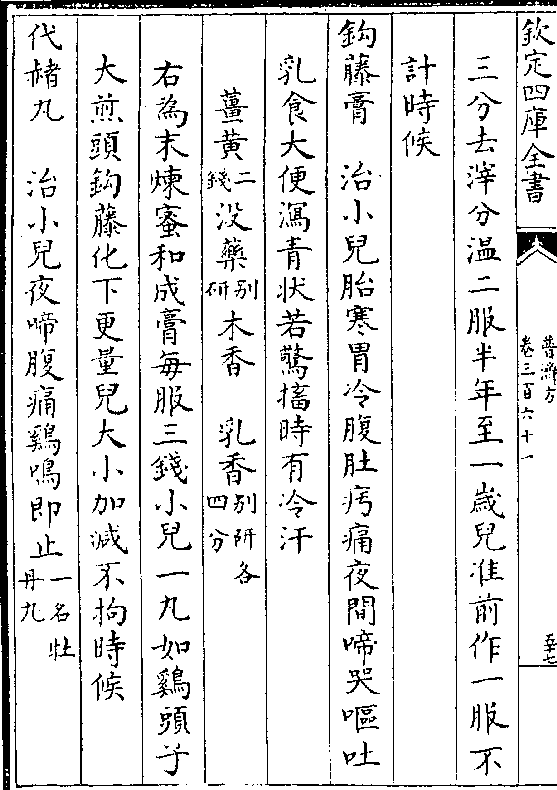 欽定四庫全書
普濟方
卷三百六十一
三分去滓分温二服半年至一歲兒准前作一服不
計時候
鈎藤膏　治小兒胎寒胃冷腹肚㽲痛夜間啼哭嘔吐
乳食大便瀉青状若驚搐時有冷汗
薑黄二錢没藥別研木香　乳香別研各四分
右為末煉蜜和成膏每服三錢小兒一丸如鷄頭子
大煎頭鈎藤化下更量兒大小加减不拘時候
代赭丸　治小兒夜啼腹痛鷄鳴即止一名牡丹丸